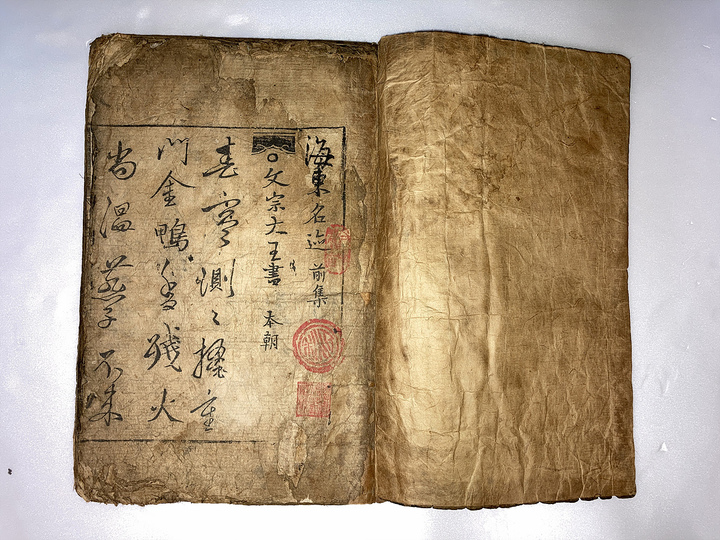 海東名迹 前集
○文宗大王書 本朝
春寒惻〻掩重
門金鴨香殘火
尚溫燕子不來